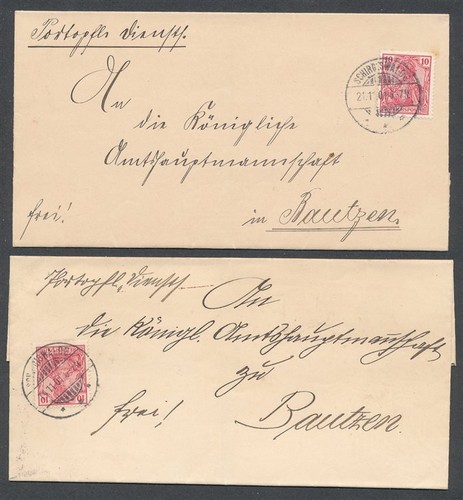 Portopfl. Diensts.
10
SCHIRGISWALDE
An
die Königliche
Amtshauptmannschaft
frei!
in Bautzen.
Portopfl. Diensts.
An
die Königl. Amtshauptmannschaft
zu
10
frei!
Bautzen.